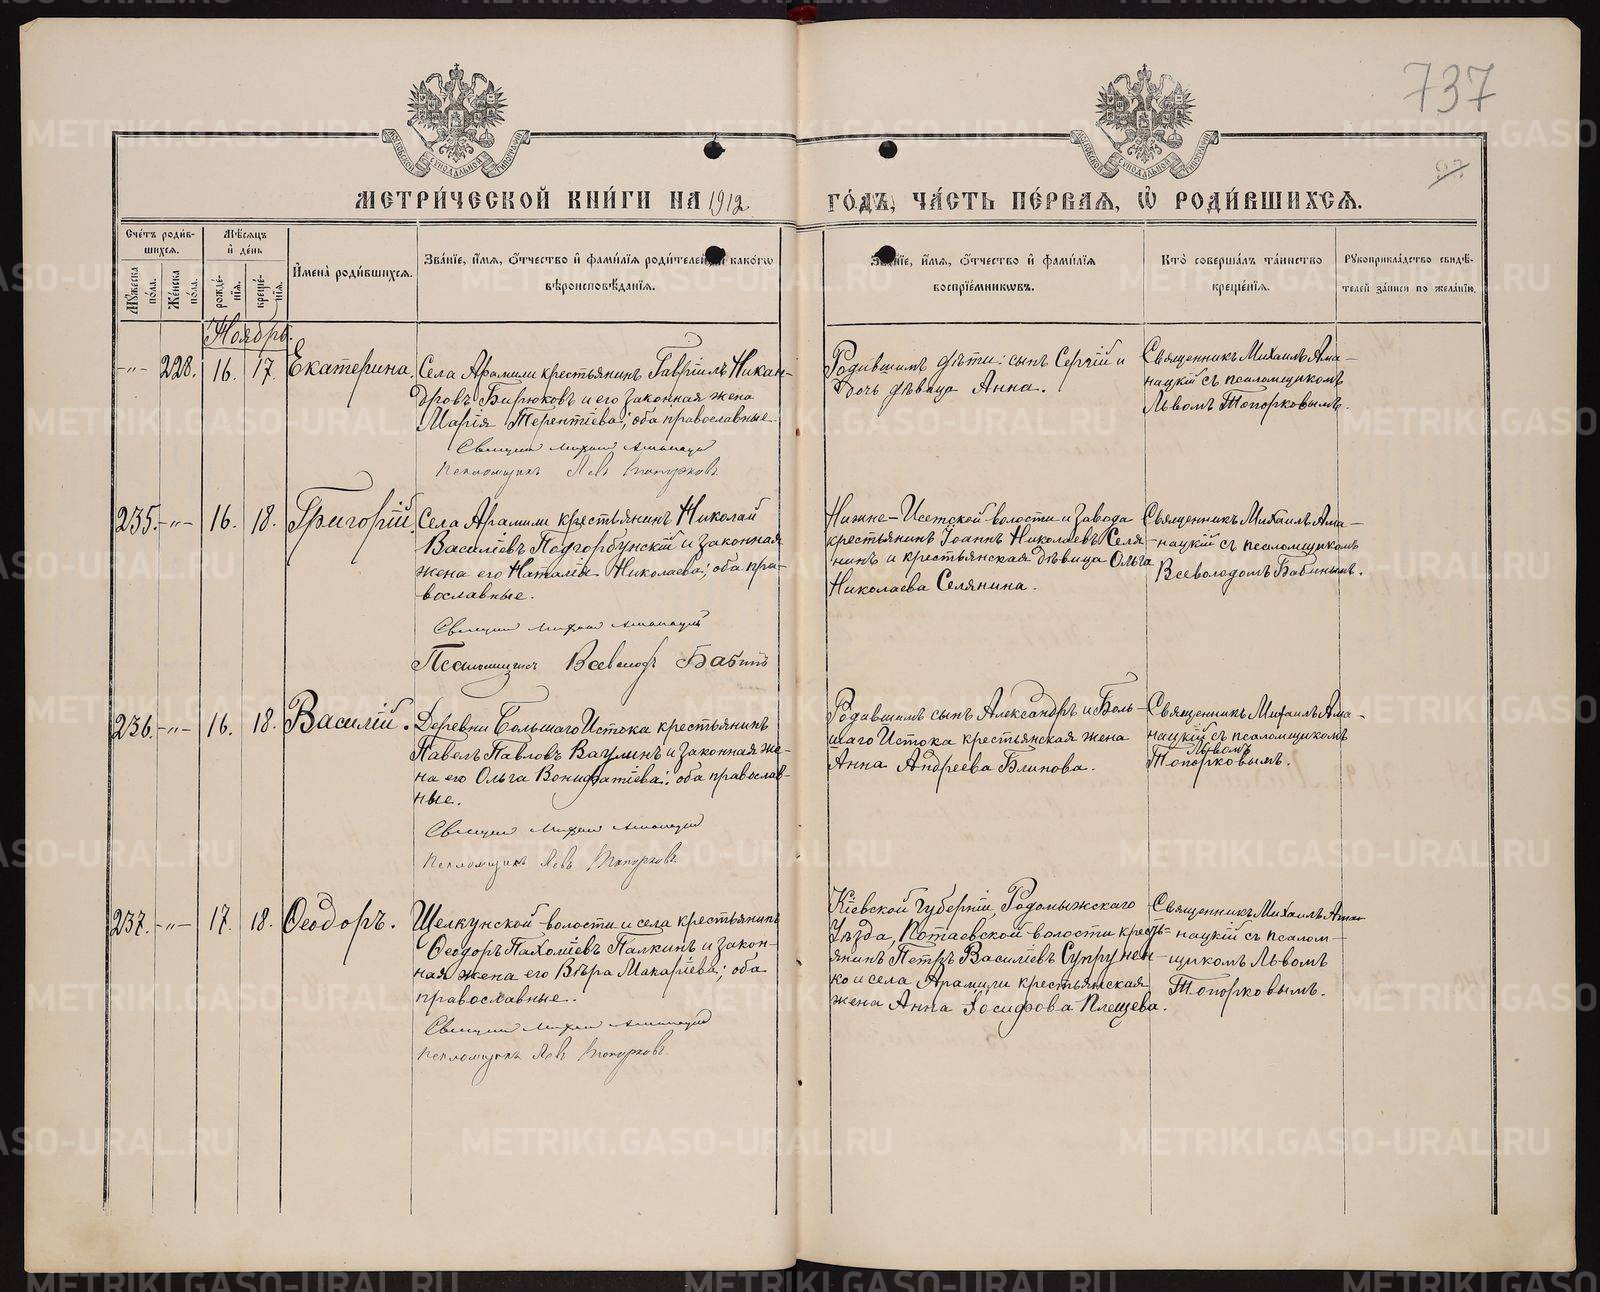 737
МОСКОВСКОЙ СѴНОДАЛЬНОЙ ТИПОГРАФІИ
МОСКОВСКОЙ СѴНОДАЛЬНОЙ ТИПОГРАФІИ
МЕТРИ́ЧЕСКОЙ КНИ́ГИ НА 1912 ГО́ДЪ, ЧА́СТЬ ПЕ́РВАЯ, Ѡ҆ РОДИ́ВШИХСЯ.
Сче́тъ роди́в-
шихся.
Мꙋ́жеска по́ла.
Же́нска по́ла.
Мѣ́сяцъ и҆ де́нь
рожде́-нїя.
креще́-нїя.
И҆мена̀ роди́вшихся.
Зва́нїе, и҆́мя, ѻ҆́тчество и҆ фами́лїя роди́телей, и҆ како́гѡ
вѣроисповѣ́данїя.
Зва́нїе, и҆́мя, ѻ҆́тчество и҆ фами́лїя
воспрїе́мникѡвъ.
Кто̀ соверша́лъ та́инство
креще́нїя.
Рꙋкоприкла́дство свидѣ́-
телей за́писи по жела́нїю.
Ноябрь.
-"- 228. 16. 17. Екатерина.
Села Арамили крестьянинъ Гавріилъ Никан-
дровъ Бирюковъ и его законная жена
Марія Терентіева; оба православные.
Священникъ Михаилъ Аманацкій
Псаломщикъ Левъ Топорковъ
Родившимъ дѣти: сынъ Сергій и
дочь дѣвица Анна.
Священникъ Михаилъ Ама-
нацкій съ псаломщикомъ
Львомъ Топорковымъ.
235. -"- 16. 18. Григорій.
Села Арамили крестьянинъ Николай
Василіевъ Подгорбунскій и законная
жена его Наталія Николаева; оба пра-
вославные.
Священникъ Михаилъ Аманацкій
Псаломщикъ Всеволодъ Бабинъ
Нижне-Исетской волости и завода
крестьянинъ Іоаннъ Николаевъ Селя-
нинъ и крестьянская дѣвица Ольга
Николаева Селянина.
Священникъ Михаилъ Ама-
нацкій съ псаломщикомъ
Всеволодомъ Бабинымъ.
236. -"- 16. 18. Василій.
Деревни Большаго Истока крестьянинъ
Павелъ Павловъ Ваулинъ и законная же-
на его Ольга Вонифатіева; оба православ-
ные.
Священникъ Михаилъ Аманацкій
Псаломщикъ Левъ Топорковъ
Родившимъ сынъ Александръ и Боль-
шаго Истока крестьянская жена
Анна Андреева Блинова.
Священникъ Михаилъ Ама-
нацкій съ псаломщикомъ
Львомъ
Топорковымъ.
237. -"- 17. 18. Ѳеодоръ.
Щелкунской волости и села крестьянинъ
Ѳеодоръ Пахоміевъ Палкинъ и закон-
ная жена его Вѣра Макаріева; оба
православные.
Священникъ Михаилъ Аманацкій
Псаломщикъ Левъ Топорковъ
Кіевской губерніи, Родомыжскаго
Уѣзда, Потаевской волости кресть-
янинъ Петръ Василіевъ Супрунен-
ко и села Арамили крестьянская
жена Анна Іосифова Плещева.
Священникъ Михаилъ Ама-
нацкій съ псалом-
щикомъ Львомъ
Топорковымъ.
METRIKI.GASO-URAL.RU